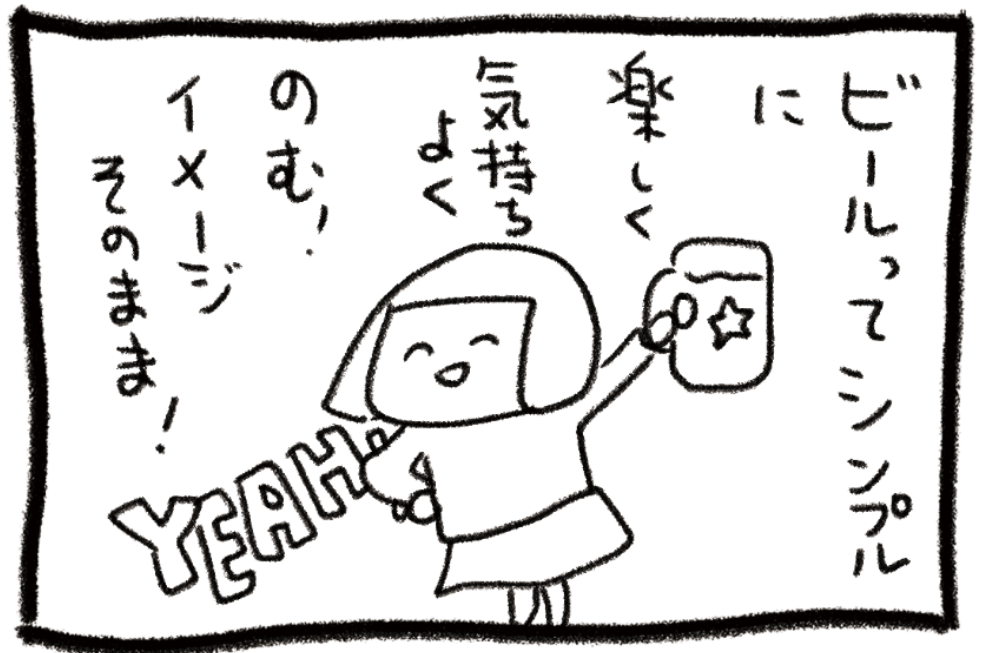 ビールってシンプル
に
楽しく
気持ち
よく
のむ！
イメージ
そのまま！
YEAH!